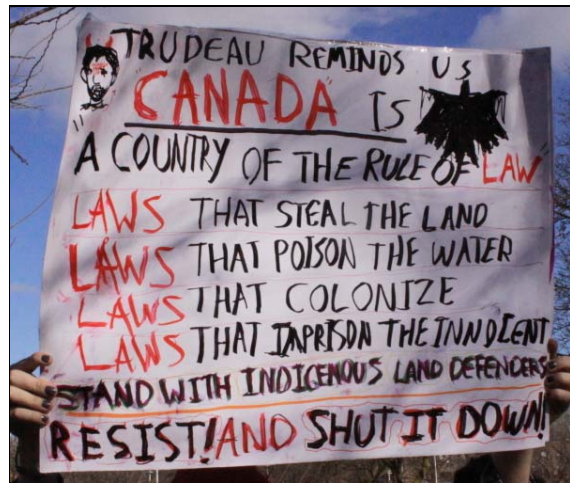 TRUDEAU REMINDS US
CANADA IS
A COUNTRY OF THE RULE OF LAW
LAWS THAT STEAL THE LAND
LAWS THAT POISON THE WATER
LAWS THAT COLONIZE
LAWS THAT IMPRISON THE INNOCENT
STAND WITH INDIGENOUS LAND DEFENDERS
RESIST! AND SHUT IT DOWN!